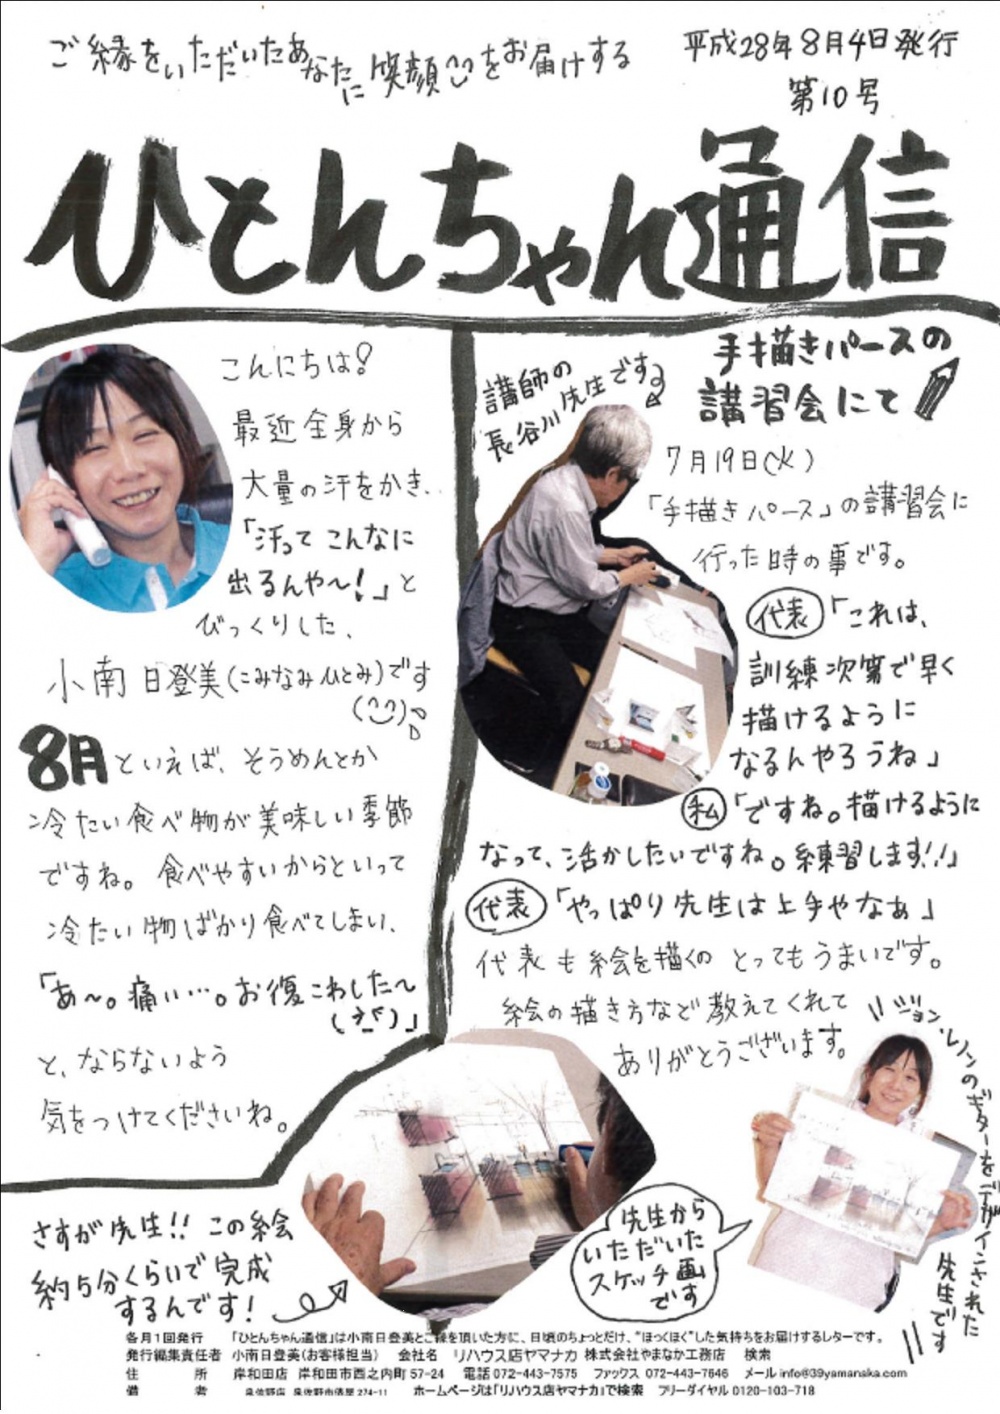 ご縁をいただいたあなたに笑顔をお届けする
平成28年8月4日発行
第10号
ひとんちゃん通信
こんにちは!
最近全身から
大量の汗をかき、
「汗ってこんなに
出るんや〜!」と
びっくりした、
小南日登美(こみなみひとみ)です
(^^)
8月といえば、そうめんとか
冷たい食べ物が美味しい季節
ですね。食べやすいからといって
冷たい物ばかり食べてしまい、
「あ〜。痛い…。お復こわした〜
」
と、ならないよう
気をつけてくださいね。
手描きパースの
講習会にて
講師の
長谷川先生です
7月19日(火)
「手描きパース」の講習会に
行った時の事です。
代表「これは、
訓練次第で早く
描けるように
なるんやろうね」
私「ですね。描けるように
なって、活かしたいですね。練習します!!」
代表「やっぱり先生は上手やなぁ」
代表も絵を描くのとってもうまいです。
絵の描き方など教えてくれて
ありがとうございます。
ジョン・レノンのギターをデザインされた
先生です
先生から
いただいた
スケッチ画
です
さすが先生!!この絵
約5分くらいで完成
するんです!
各月1回発行 「ひとんちゃん通信」は小南日登美とご縁を頂いた方に、日頃のちょっとだけ、"ほっくほく"した気持ちをお届けするレターです。
発行編集責任者 小南日登美(お客様担当) 会社名 リハウス店ヤマナカ 株式会社やまなか工務店 検索
住所 岸和田店 岸和田市西之内町57-24 電話072-443-7575 ファックス072-443-7646 メールinfo@39yamanaka.com
備者 泉佐野店 泉佐野市俵屋274-11 ホームページは「リハウス店ヤマナカ」で検索 フリーダイヤル0120-103-718